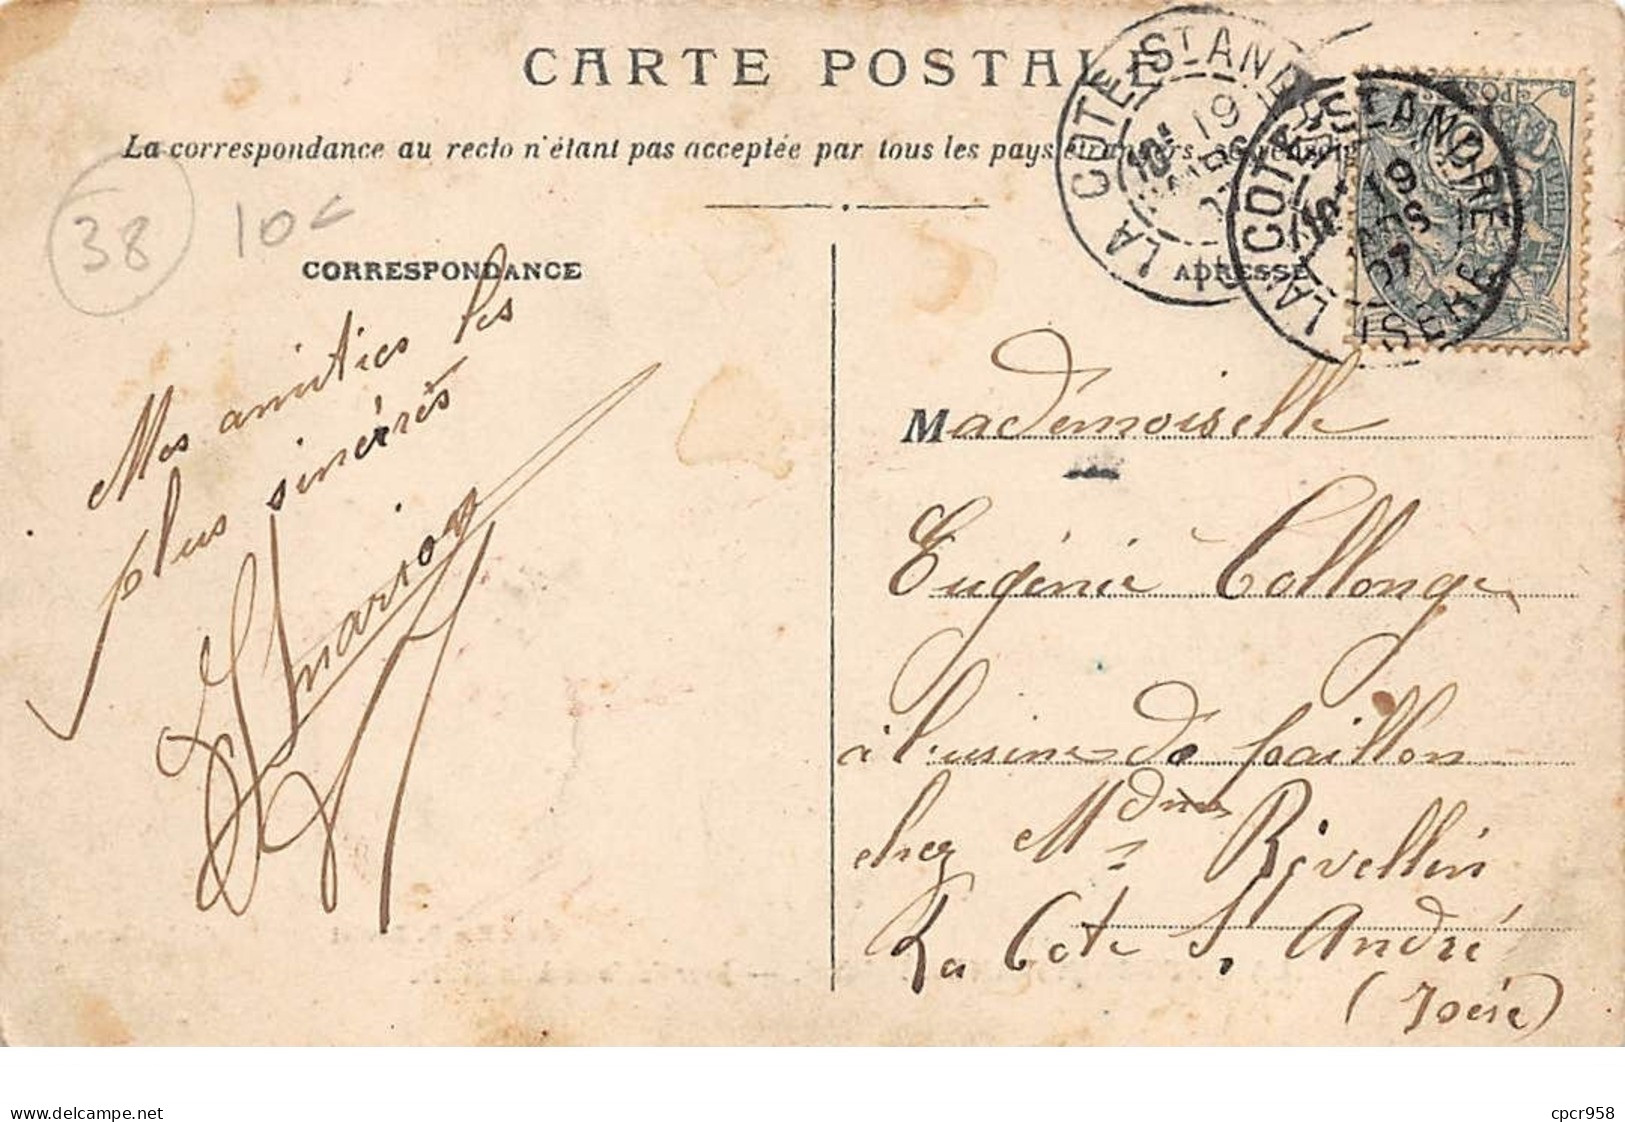 CARTE POSTALE
La correspondance au recto n'étant pas acceptée par tous les pays étrangers,
38 10c
CORRESPONDANCE
ADRESSE
LA COTE-ST ANDRÉ
19
LA COTE-ST ANDRE
19
MARS
07
ISERE
Mes amitiés les
plus sincères
Mademoiselle
Eugénie Collonge
à l'usine de paillon
chez Mdme Rivellin
La Cote St André
(Isère)
delcampe.net
cpcr958